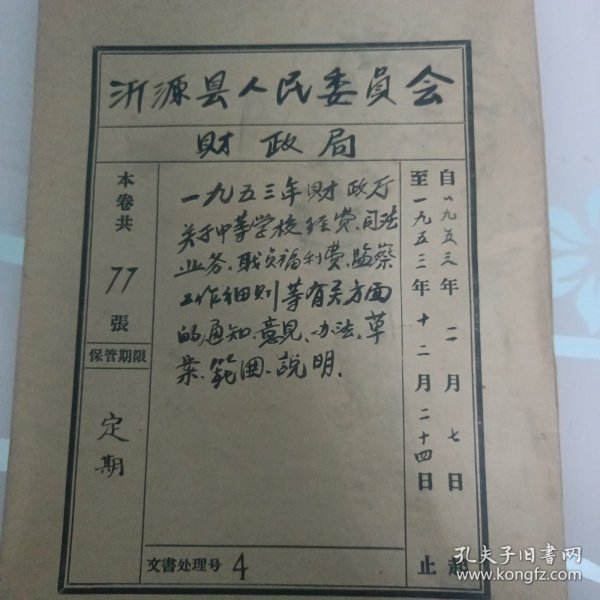 沂源县人民委員会
財政局
自一九五三年二月七日起
至一九五三年十二月二十四日止
一九五三年财政厅
关于中等学校经费、司法
业务、职员福利费、监察
工作细则等有关方面
的通知、意见、办法、草
案、範围、説明、
本卷共
77
張
保管期限
定期
文書处理号 4
孔夫子旧书网
www.kongfz.com